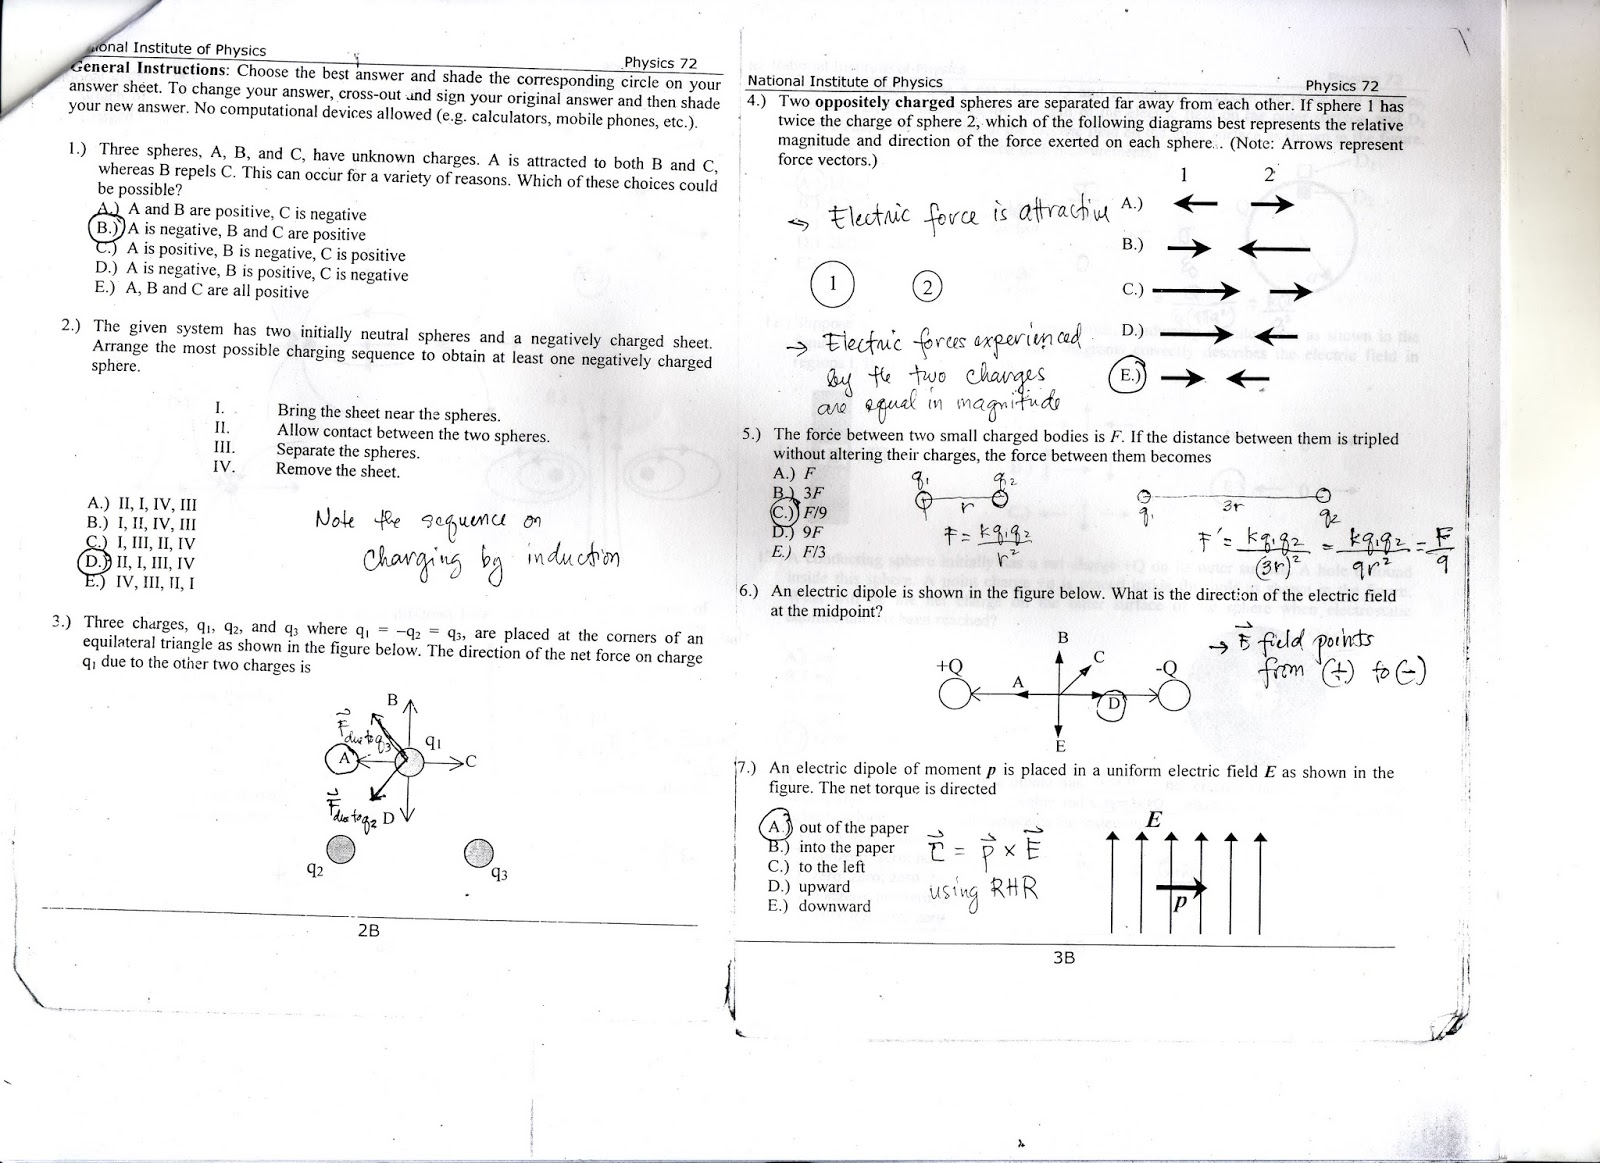 onal Institute of Physics
Physics 72
General Instructions: Choose the best answer and shade the corresponding circle on your
answer sheet. To change your answer, cross-out and sign your original answer and then shade
your new answer. No computational devices allowed (e.g. calculators, mobile phones, etc.).
1.) Three spheres, A, B, and C, have unknown charges. A is attracted to both B and C,
whereas B repels C. This can occur for a variety of reasons. Which of these choices could
be possible?
A.) A and B are positive, C is negative
B.) A is negative, B and C are positive
C.) A is positive, B is negative, C is positive
D.) A is negative, B is positive, C is negative
E.) A, B and C are all positive
2.) The given system has two initially neutral spheres and a negatively charged sheet.
Arrange the most possible charging sequence to obtain at least one negatively charged
sphere.
I. Bring the sheet near the spheres.
II. Allow contact between the two spheres.
III. Separate the spheres.
IV. Remove the sheet.
A.) II, I, IV, III
B.) I, II, IV, III
C.) I, III, II, IV
D.) II, I, III, IV
E.) IV, III, II, I
Note the sequence on
charging by induction
3.) Three charges, q₁, q₂, and q₃ where q₁ = −q₂ = q₃, are placed at the corners of an
equilateral triangle as shown in the figure below. The direction of the net force on charge
q₁ due to the other two charges is
B
F⃗ due to q₃
q₁
A
C
F⃗ due to q₂
D
q₂
q₃
2B
National Institute of Physics
Physics 72
4.) Two oppositely charged spheres are separated far away from each other. If sphere 1 has
twice the charge of sphere 2, which of the following diagrams best represents the relative
magnitude and direction of the force exerted on each sphere.. (Note: Arrows represent
force vectors.)
1 2
→ Electric force is attractive
A.)
B.)
1 2
C.)
D.)
→ Electric forces experienced
by the two charges
are equal in magnitude
E.)
5.) The force between two small charged bodies is F. If the distance between them is tripled
without altering their charges, the force between them becomes
A.) F
B.) 3F
C.) F/9
D.) 9F
E.) F/3
q₁ q₂
r
F = kq₁q₂/r²
3r
q₁ q₂
F' = kq₁q₂/(3r)² = kq₁q₂/9r² = F/9
6.) An electric dipole is shown in the figure below. What is the direction of the electric field
at the midpoint?
B
C
+Q
A
-Q
D
E
→ E⃗ field points
from (+) to (-)
7.) An electric dipole of moment p is placed in a uniform electric field E as shown in the
figure. The net torque is directed
A.) out of the paper
B.) into the paper
C.) to the left
D.) upward
E.) downward
τ⃗ = p⃗ × E⃗
using RHR
E
p
3B